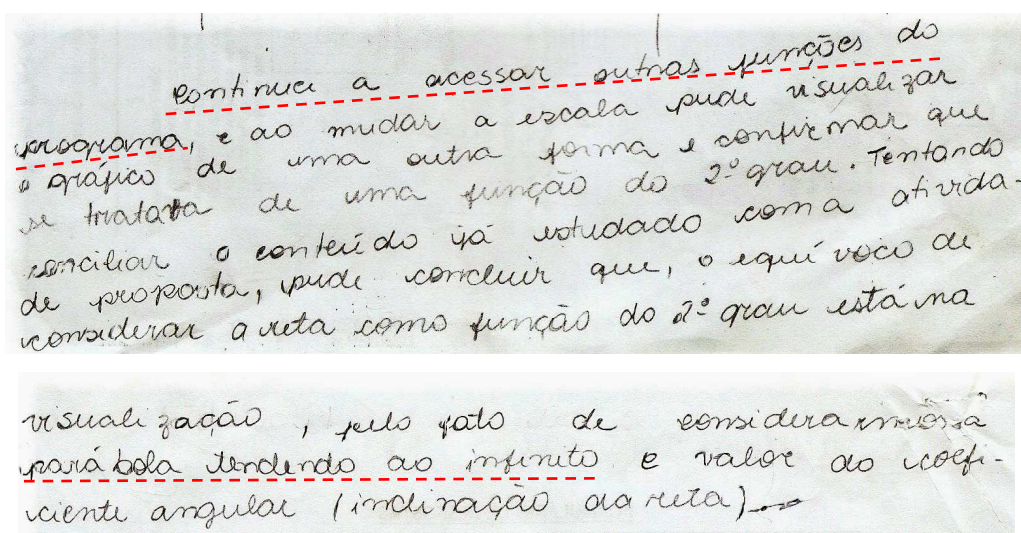 Continuei a acessar outras funções do
programa, e ao mudar a escala pude visualizar
o gráfico de uma outra forma e confirmar que
se tratava de uma função do 2º grau. Tentando
conciliar o conteúdo já estudado com a ativida-
de proposta, pude concluir que, o equívoco de
considerar a reta como função do 2º grau está na
visualização, pelo fato de considerarmos a
parábola tendendo ao infinito e valor do coefi-
ciente angular (inclinação da reta)